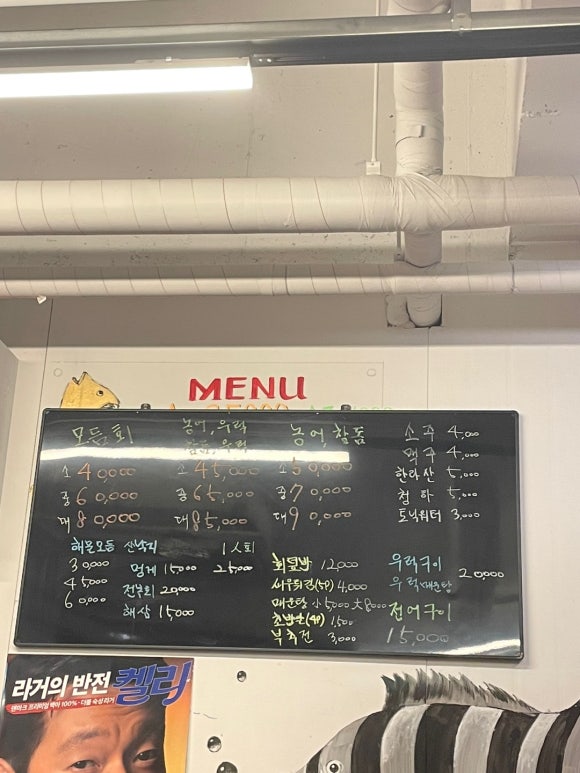 MENU
모듬회
소 40,000
중 60,000
대 80,000
농어, 우럭
참돔, 우럭
소 45,000
중 65,000
대 85,000
농어, 참돔
소 50,000
중 70,000
대 90,000
소주 4,000
맥주 4,000
한라산 5,000
청하 5,000
토닉워터 3,000
해물모듬
30,000
45,000
60,000
산낙지
멍게 15,000
전복회 20,000
해삼 15,000
1人회
25,000
회덮밥 12,000
새우튀김(5P) 4,000
매운탕 小5000 大8000
초밥 (4P) 1,500
부추전 3,000
우럭구이
우럭매운탕 20,000
전어구이
15,000
라거의 반전 켈리
덴마크 프리미엄 맥아 100% · 더블 숙성 라거